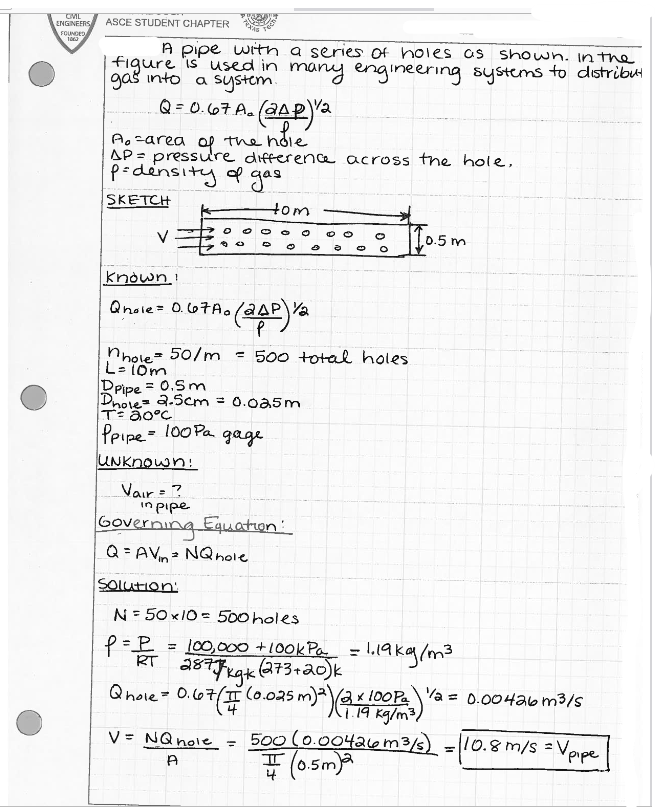 CIVIL
ENGINEERS
FOUNDED
1852
ASCE STUDENT CHAPTER
TEXAS TECH
A pipe with a series of holes as shown. in the
figure is used in many engineering systems to distribut
gas into a system.
Q = 0.67 A₀ (2ΔP/ρ)^1/2
A₀ = area of the hole
ΔP = pressure difference across the hole.
ρ = density of gas
SKETCH
10m
V
0.5 m
Known:
Qhole = 0.67 A₀ (2ΔP/ρ)^1/2
nhole = 50/m = 500 total holes
L = 10m
Dpipe = 0.5m
Dhole = 2.5cm = 0.025m
T = 20°C
Ppipe = 100Pa gage
UNKNOWN:
Vair = ?
in pipe
Governing Equation:
Q = AVin = NQhole
Solution:
N = 50 x 10 = 500 holes
ρ = P/RT = 100,000 + 100kPa / 287 J/kg·k (273+20)k = 1.19 kg/m³
Qhole = 0.67 (π/4 (0.025m)²)(2 x 100Pa / 1.19 kg/m³)^1/2 = 0.00426 m³/s
V = NQhole/A = 500 (0.00426 m³/s) / π/4 (0.5m)² = 10.8 m/s = Vpipe